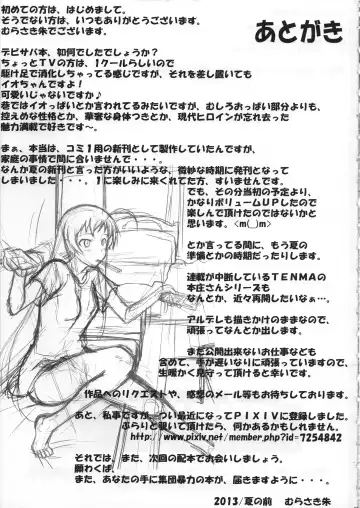 あとがき
初めての方は、はじめまして。
そうでない方は、いつもありがとうございます。
むらさき朱でございます。
デビサバ本、如何でしたでしょうか？
ちょっとTVの方は、1クールらしいので
駆け足で消化しちゃってる感じですが、それを差し置いても
イオちゃんですよ！
可愛いじゃないですか♪
巷ではイオっぱいとか言われてるみたいですが、むしろおっぱい部分よりも、
控えめな性格とか、華奢な身体つきとか、現代ヒロインが忘れ去った
魅力満載で好きです～。
まぁ、本当は、コミ1用の新刊として製作していたんですが、
家庭の事情で間に合いませんで・・・。
なんか夏の新刊と言った方がいいような、微妙な時期に発刊となって
しまいました・・・。1に楽しみに来てくれてた方、すいませんです。
でも、その分当初の予定より、
かなりボリュームUPしたので
楽しんで頂けたのではないかと
思います。<m(__)m>
とか言ってる間に、もう夏の
準備とかの時期だったりします。
連載が中断しているTENMAの
本庄さんシリーズも
なんとか、近々再開したいなぁ…。
アルテレも描きかけのままなので、
頑張ってなんとか出します。
まだ公開出来ないお仕事なども
含めて、手が遅いなりに頑張っていますので、
生暖かく見守って頂けると幸いです。
作品へのリクエストや、感想のメール等もお待ちしております。
あと、私事ですが、つい最近になってPIXIVに登録しました。
ぶらりと覗いて頂けたら、何かあるかもしれません。
http://www.pixiv.net/member.php?id=7254842
それでは、また、次回の配本でお会いしましょう。
願わくば、
また、あなたの手に集団暴力の本が、届きますように・・・。
2013/夏の前　むらさき朱